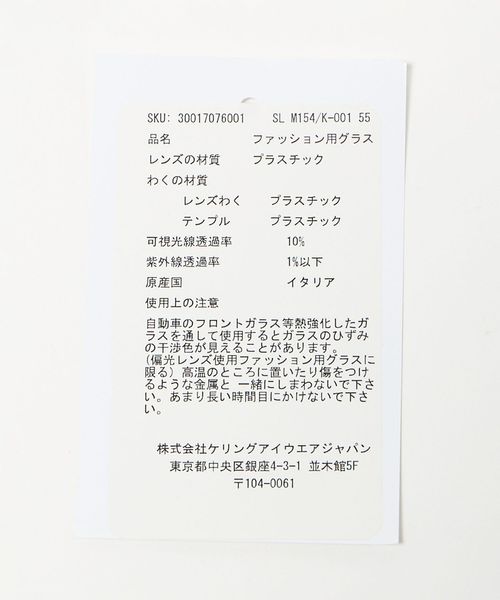 SKU: 30017076001 SL M154/K-001 55
品名 ファッション用グラス
レンズの材質 プラスチック
わくの材質
レンズわく プラスチック
テンプル プラスチック
可視光線透過率 10%
紫外線透過率 1%以下
原産国 イタリア
使用上の注意
自動車のフロントガラス等熱強化したガ
ラスを通して使用するとガラスのひずみ
の干渉色が見えることがあります。
(偏光レンズ使用ファッション用グラスに
限る) 高温のところに置いたり傷をつけ
るような金属と 一緒にしまわないで下さ
い。あまり長い時間目にかけないで下さ
い。
株式会社ケリングアイウエアジャパン
東京都中央区銀座4-3-1 並木館5F
〒104-0061